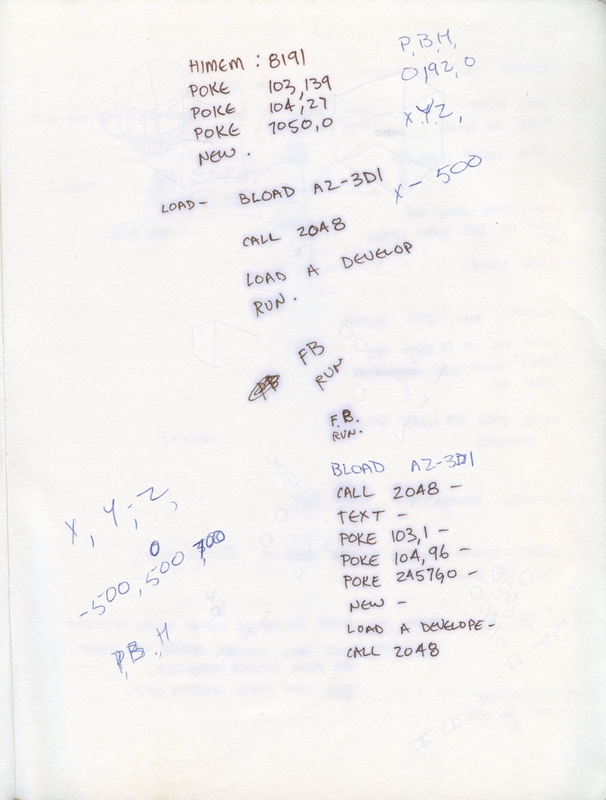 HIMEM : 8191
POKE 103,139
POKE 104,27
POKE 7050,0
NEW .
P,B,H,
0,192,0
X,Y,Z,
X - 500
LOAD - BLOAD A2-3D1
CALL 2048
LOAD A DEVELOP
RUN .
FB
RUN
F.B.
RUN.
BLOAD A2-3D1
CALL 2048 -
TEXT -
POKE 103,1 -
POKE 104,96 -
POKE 24576,0 -
NEW -
LOAD A DEVELOPE -
CALL 2048
X, Y, Z,
0
-500, 500
P,B,,H